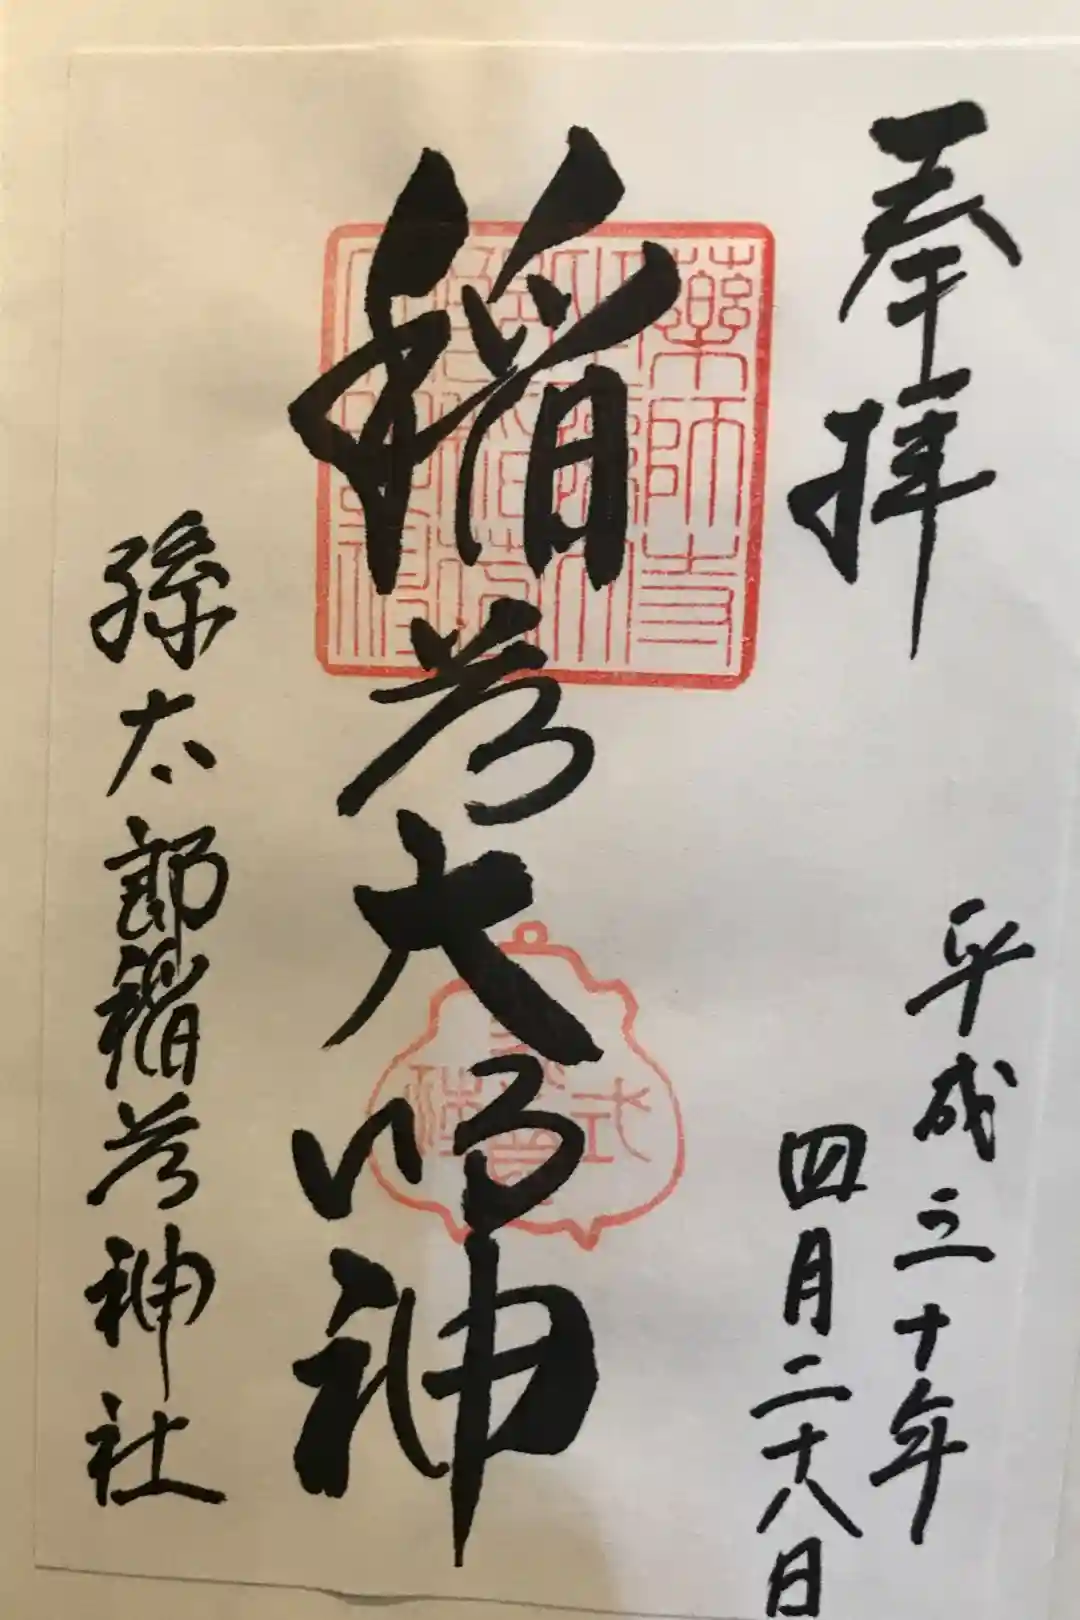 奉拝
平成三十年
四月二十八日
薬師寺
稲荷大明神
孫太郎稲荷神社